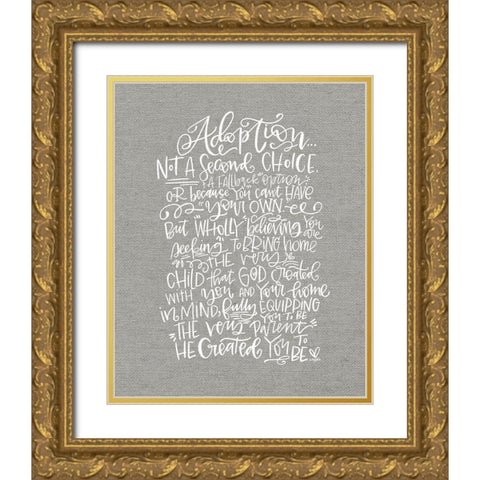 Adoption...
NOT A Second CHOICE.
"A FALLBACK" OPTION
OR because YOU can't HAVE
"YOUR OWN"
But WHOLLY believing You are
seeking TO BRING home
THE very
CHILD that GOD Created
WITH you AND Your home
IN MIND, fully EQUIPPING
You TO BE
THE very Parent
HE Created You TO BE